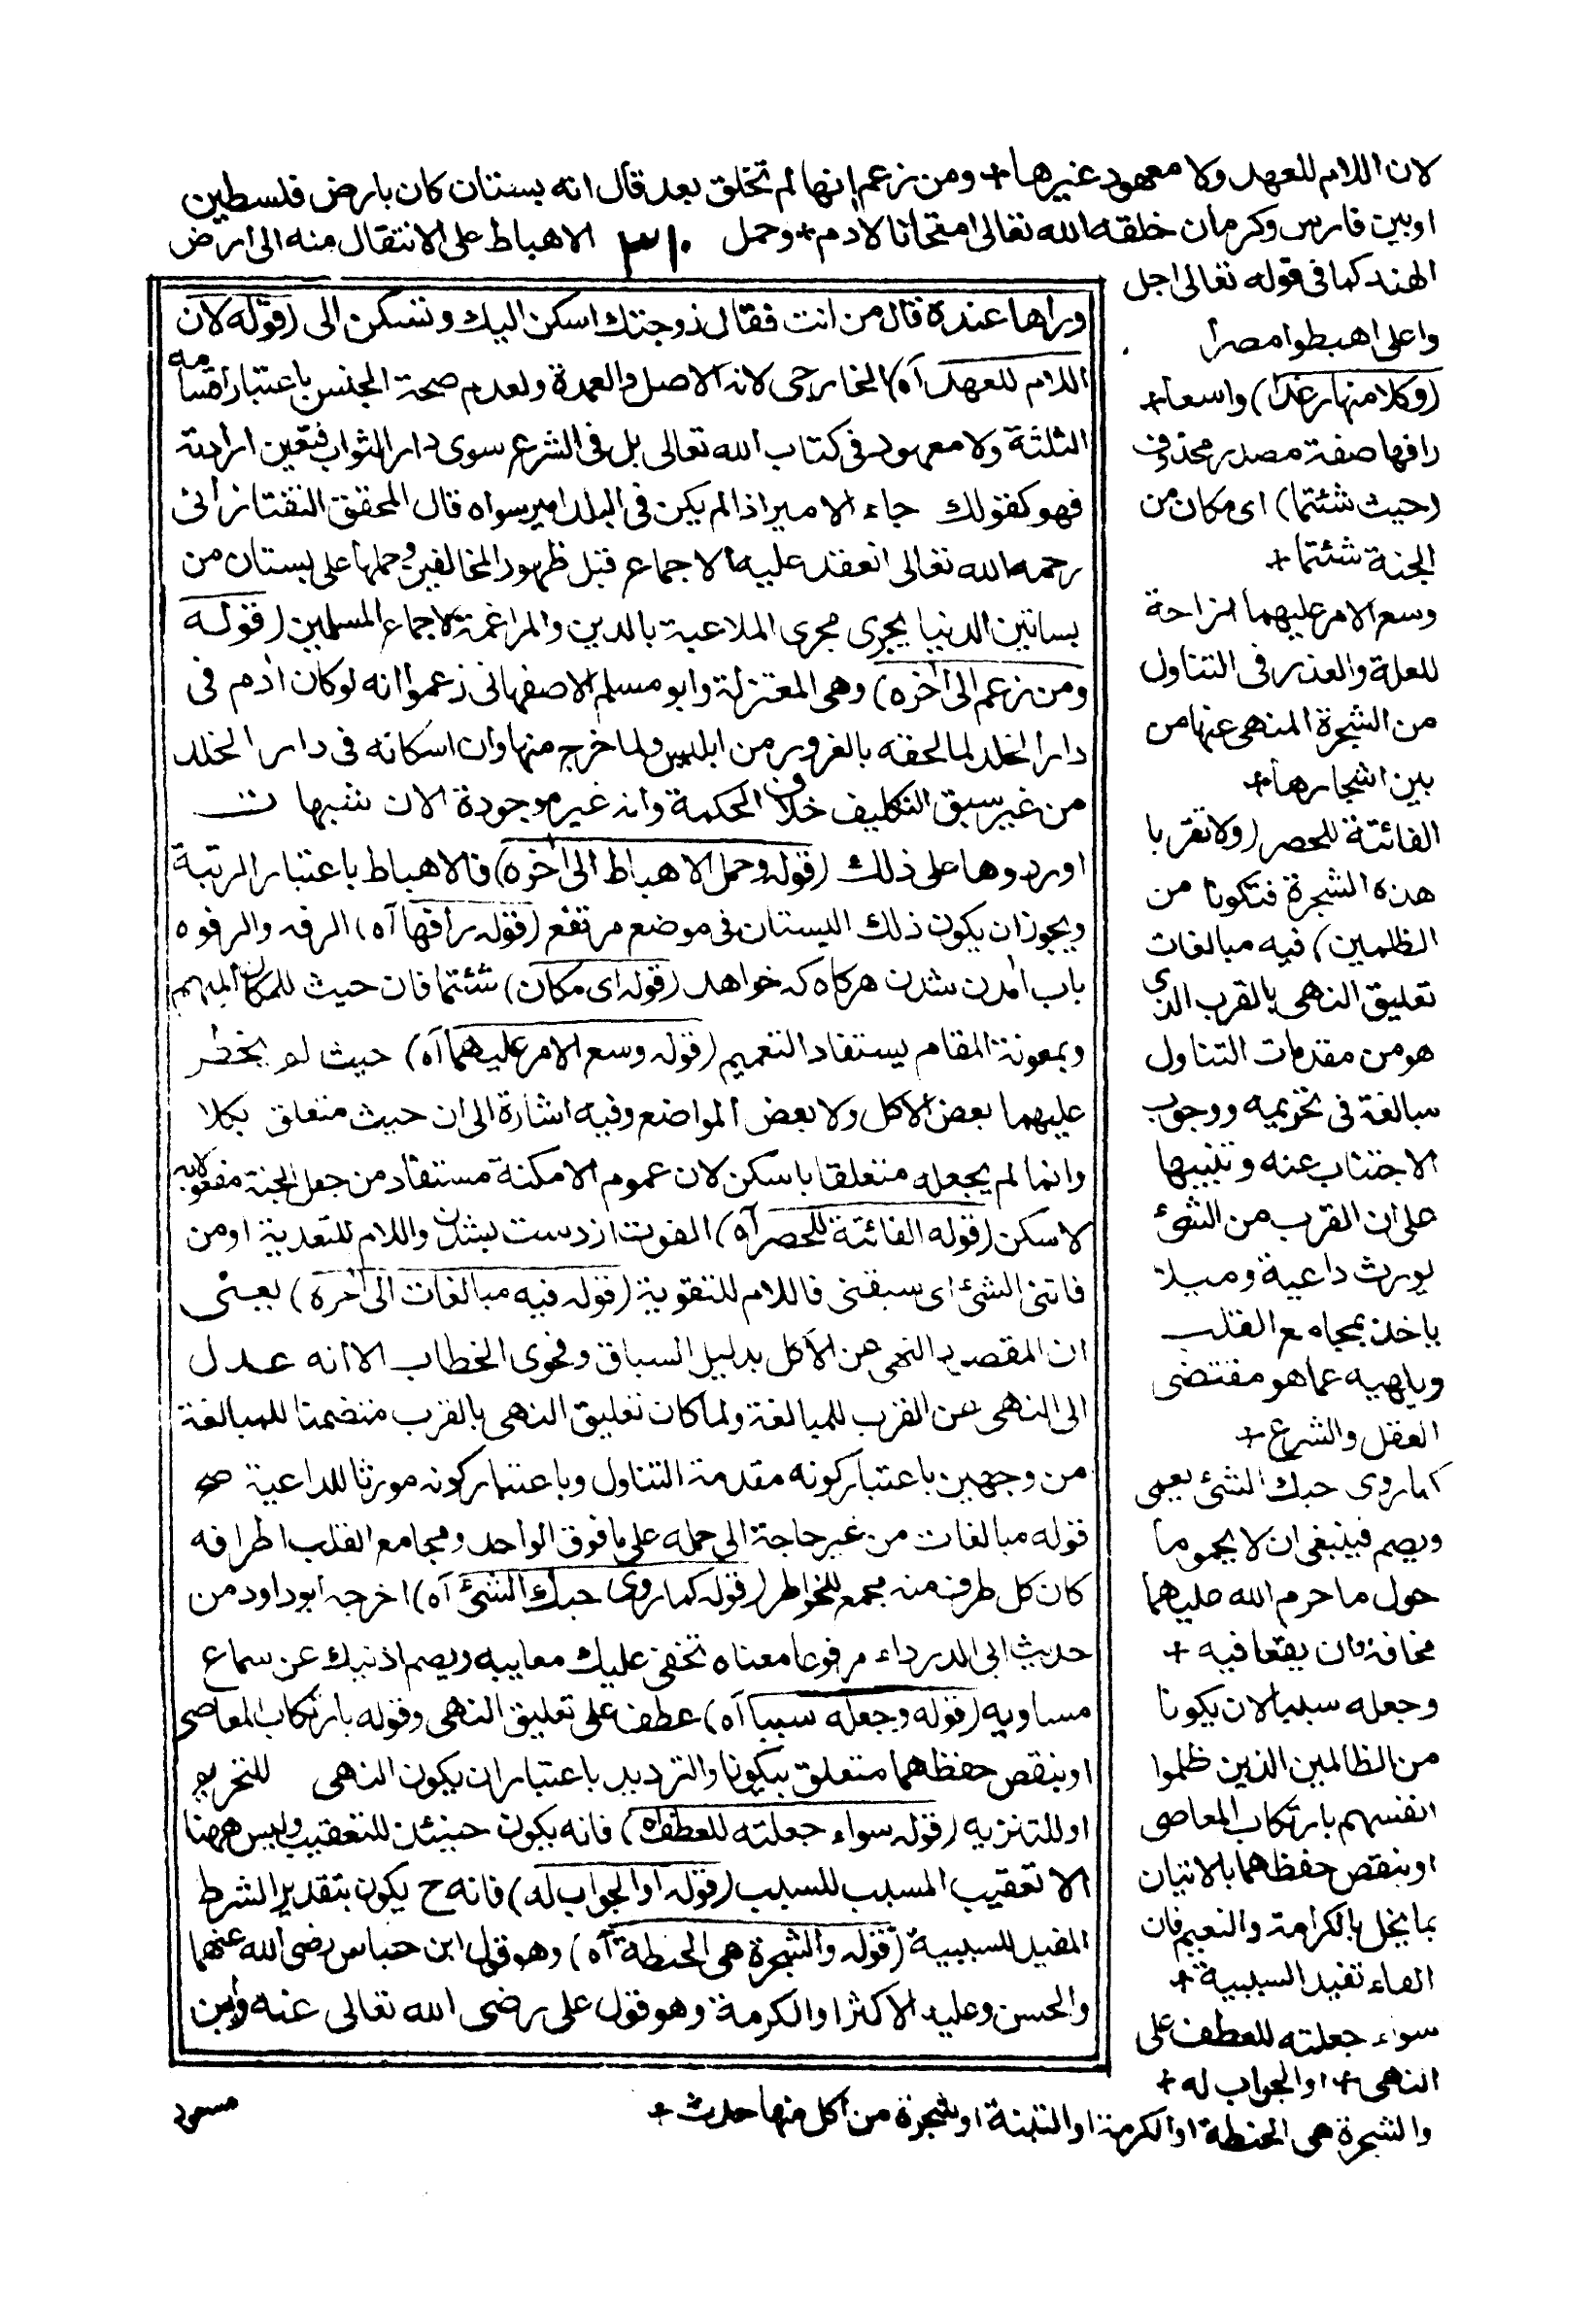 لان اللام للعهد ولا معهود غيرها+ ومن زعم انها لم تخلق بعد قال انه بستان كان بارض فلسطين
اوبين فارس وكرمان خلقه الله تعالى امتحانا لادم+ وحمل ٣١٠ الاهباط على الانتقال منه الى ارض
الهند كما فى قوله تعالى اجل
واعلى اهبطوا مصرا
(وكلا منها رغدا) واسعا+
رافها صفة مصدر محذوف
(حيث شئتما) اى مكان من
الجنة شئتما+
وسع الامر عليهما ازاحة
للعلة والعذر فى التناول
من الشجرة المنهى عنها من
بين اشجارها+
الفائتة للحصر (ولا تقربا
هذه الشجرة فتكونا من
الظلمين) فيه مبالغات
تعليق النهى بالقرب الذى
هو من مقدمات التناول
مبالغة فى تحريمه ووجوب
الاجتناب عنه وتنبيها
على ان القرب من الشئ
يورث داعية وميلا
ياخذ بمجامع القلب
ويلهيه عما هو مقتضى
العقل والشرع+
كما روى حبك الشئ يعمى
ويصم فينبغى ان لا يحوما
حول ما حرم الله عليهما
مخافة ان يقعا فيه+
وجعله سببا لان يكونا
من الظالمين الذين ظلموا
انفسهم بارتكاب المعاصى
اوبنقص حفظهما بالاتيان
بما يخل بالكرامة والنعيم فان
الفاء تفيد السببية+
سواء جعلته للعطف على
النهى+ او الجواب له+
والشجرة هى الحنطة او الكرمة او التينة اوشجرة من اكل منها حدث+
وراها عنده قال من انت فقال زوجتك اسكن اليك وتسكن الى (قوله لان
اللام للعهد آه) الخارجى لانه الاصل والعمدة ولعدم صحة الجنس باعتبار اقسامه
الثلثة ولا معهود فى كتاب الله تعالى بل فى الشرع سوى دار الثواب فتعين ارادته
فهو كقولك جاء الامير اذا لم يكن فى البلد امير سواه قال المحقق التفتازانى
رحمه الله تعالى انعقد عليه الاجماع قبل ظهور المخالفين وحملها على بستان من
بساتين الدنيا يجرى مجرى الملاعبة بالدين والمراغمة لاجماع المسلمين (قوله
ومن زعم الى آخره) وهى المعتزلة وابو مسلم الاصفهانى زعموا انه لو كان ادم فى
دار الخلد لما لحقه بالغرور من ابليس ولما خرج منها وان اسكانه فى دار الخلد
من غير سبق التكليف خلاف الحكمة وانه غير موجودة الان شبهات
اوردوها على ذلك (قوله وحمل الاهباط الى آخره) فالاهباط باعتبار المرتبة
ويجوز ان يكون ذلك البستان فى موضع مرتفع (قوله رافها آه) الرفه والرفوه
باب آمدن شدن هركاه كه خواهد (قوله اى مكان) شئتما فان حيث للمكان المبهم
وبمعونة المقام يستفاد التعميم (قوله وسع الامر عليهما آه) حيث لم يحظر
عليهما بعض الاكل ولا بعض المواضع وفيه اشارة الى ان حيث متعلق بكلا
وانما لم يجعله متعلقا باسكن لان عموم الامكنة مستفاد من جعل الجنة مفعولا به
لاسكن (قوله الفائتة للحصر آه) الفوت از دست بشدن واللام للتعدية اومن
فاتنى الشئ اى سبقنى فاللام للتقوية (قوله فيه مبالغات الى آخره) يعنى
ان المقصود النهى عن الاكل بدليل السباق وفحوى الخطاب الا انه عدل
الى النهى عن القرب للمبالغة ولما كان تعليق النهى بالقرب متضمنا للمبالغة
من وجهين باعتبار كونه مقدمة التناول وباعتبار كونه مورثا للداعية صح
قوله مبالغات من غير حاجة الى حمله على ما فوق الواحد ومجامع القلب اطرافه
كان كل طرف منه مجمع للخواطر (قوله كما روى حبك الشئ آه) اخرجه ابو داود من
حديث ابى الدرداء مرفوعا معناه تخفى عليك معايبه ويصم اذنيك عن سماع
مساويه (قوله وجعله سببا آه) عطف على تعليق النهى وقوله بارتكاب المعاصى
اوبنقص حفظهما متعلق بيكونا والترديد باعتبار ان يكون النهى للتحريم
اوللتنزيه (قوله سواء جعلته للعطف آه) فانه يكون حينئذ للتعقيب وليس ههنا
الا تعقيب المسبب للسبب (قوله او الجواب له) فانه ح يكون بتقدير الشرط
المفيد للسببية (قوله والشجرة هى الحنطة آه) وهو قول ابن عباس رضى الله عنهما
والحسن وعليه الاكثر او الكرمة وهو قول على رضى الله تعالى عنه وابن
مسعود